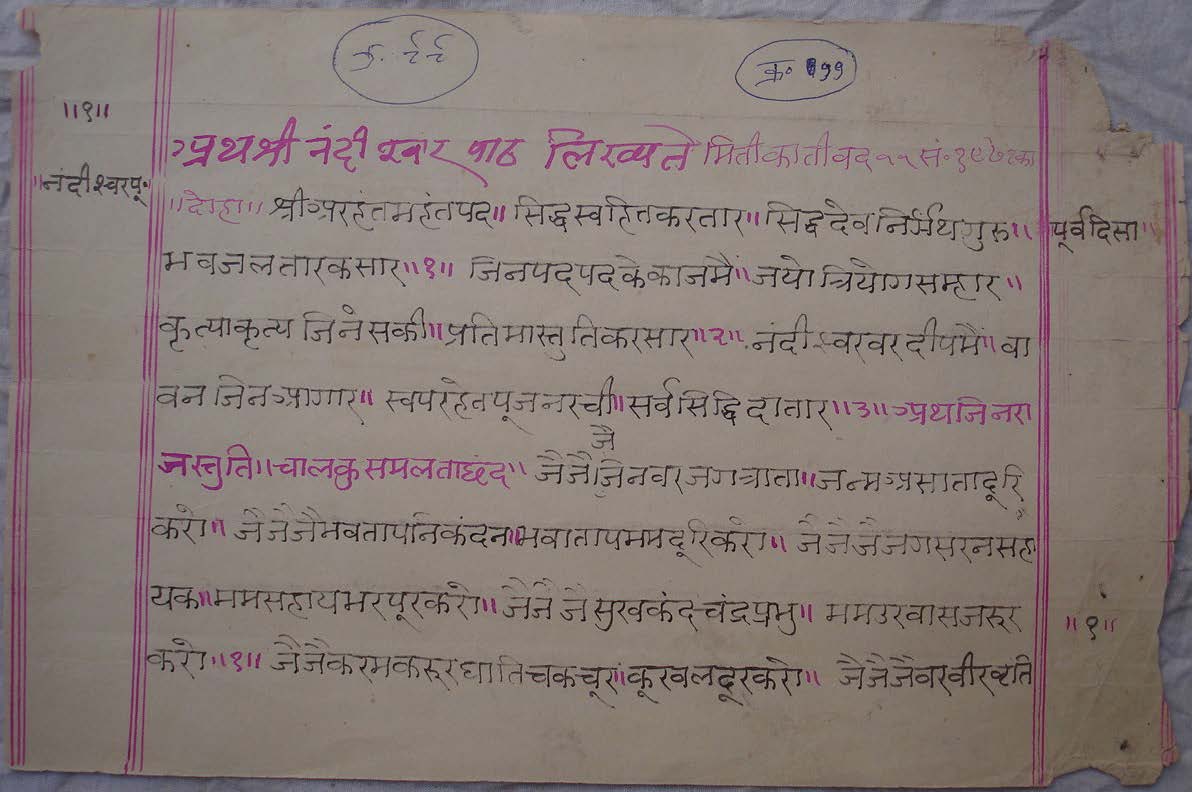 क्र. ८८
क्र० 199
॥१॥
अथ श्री नंदीश्वर पाठ लिख्यते मिती काती वद ११ सं॰ १९७१ का
॥नंदीश्वरपू॰
॥दोहा॥ श्रीअरहंतमहंतपद॥ सिद्धस्वहितकरतार॥ सिद्धदेवनिर्ग्रथगुरु॥
पूर्वदिसा॥
भवजलतारकसार॥१॥ जिनपदपदकेकाजमै॥ जयोत्रियोगसम्हार॥
कृत्याकृत्यजिनेसकी॥ प्रतिमास्तुतिकरसार॥२॥ नंदीश्वरवरदीपमैं॥ वा
वनजिनआगार॥ स्वपरहेतपूजनरची॥ सर्वसिद्धिदातार॥३॥ अथजिनरा
जै
जस्तुति॥ चालकुसमलताछंद॥ जैजैजिनवरजगत्राता॥ जन्मअसातादूरि
करो॥ जैजैजैभवतापनिकंदन॥ भवातापममदूरिकरो॥ जैजैजैजगसरनसहा
यक॥ ममसहायभरपूरकरो॥ जैजैजैसुखकंदचंद्रप्रभु॥ ममउरवासजरूर
॥१॥
करो॥१॥ जैजैकरमकरूरघातिचकचूर॥ कूरवलदूरकरो॥ जैजैजैवरवीरव्रति